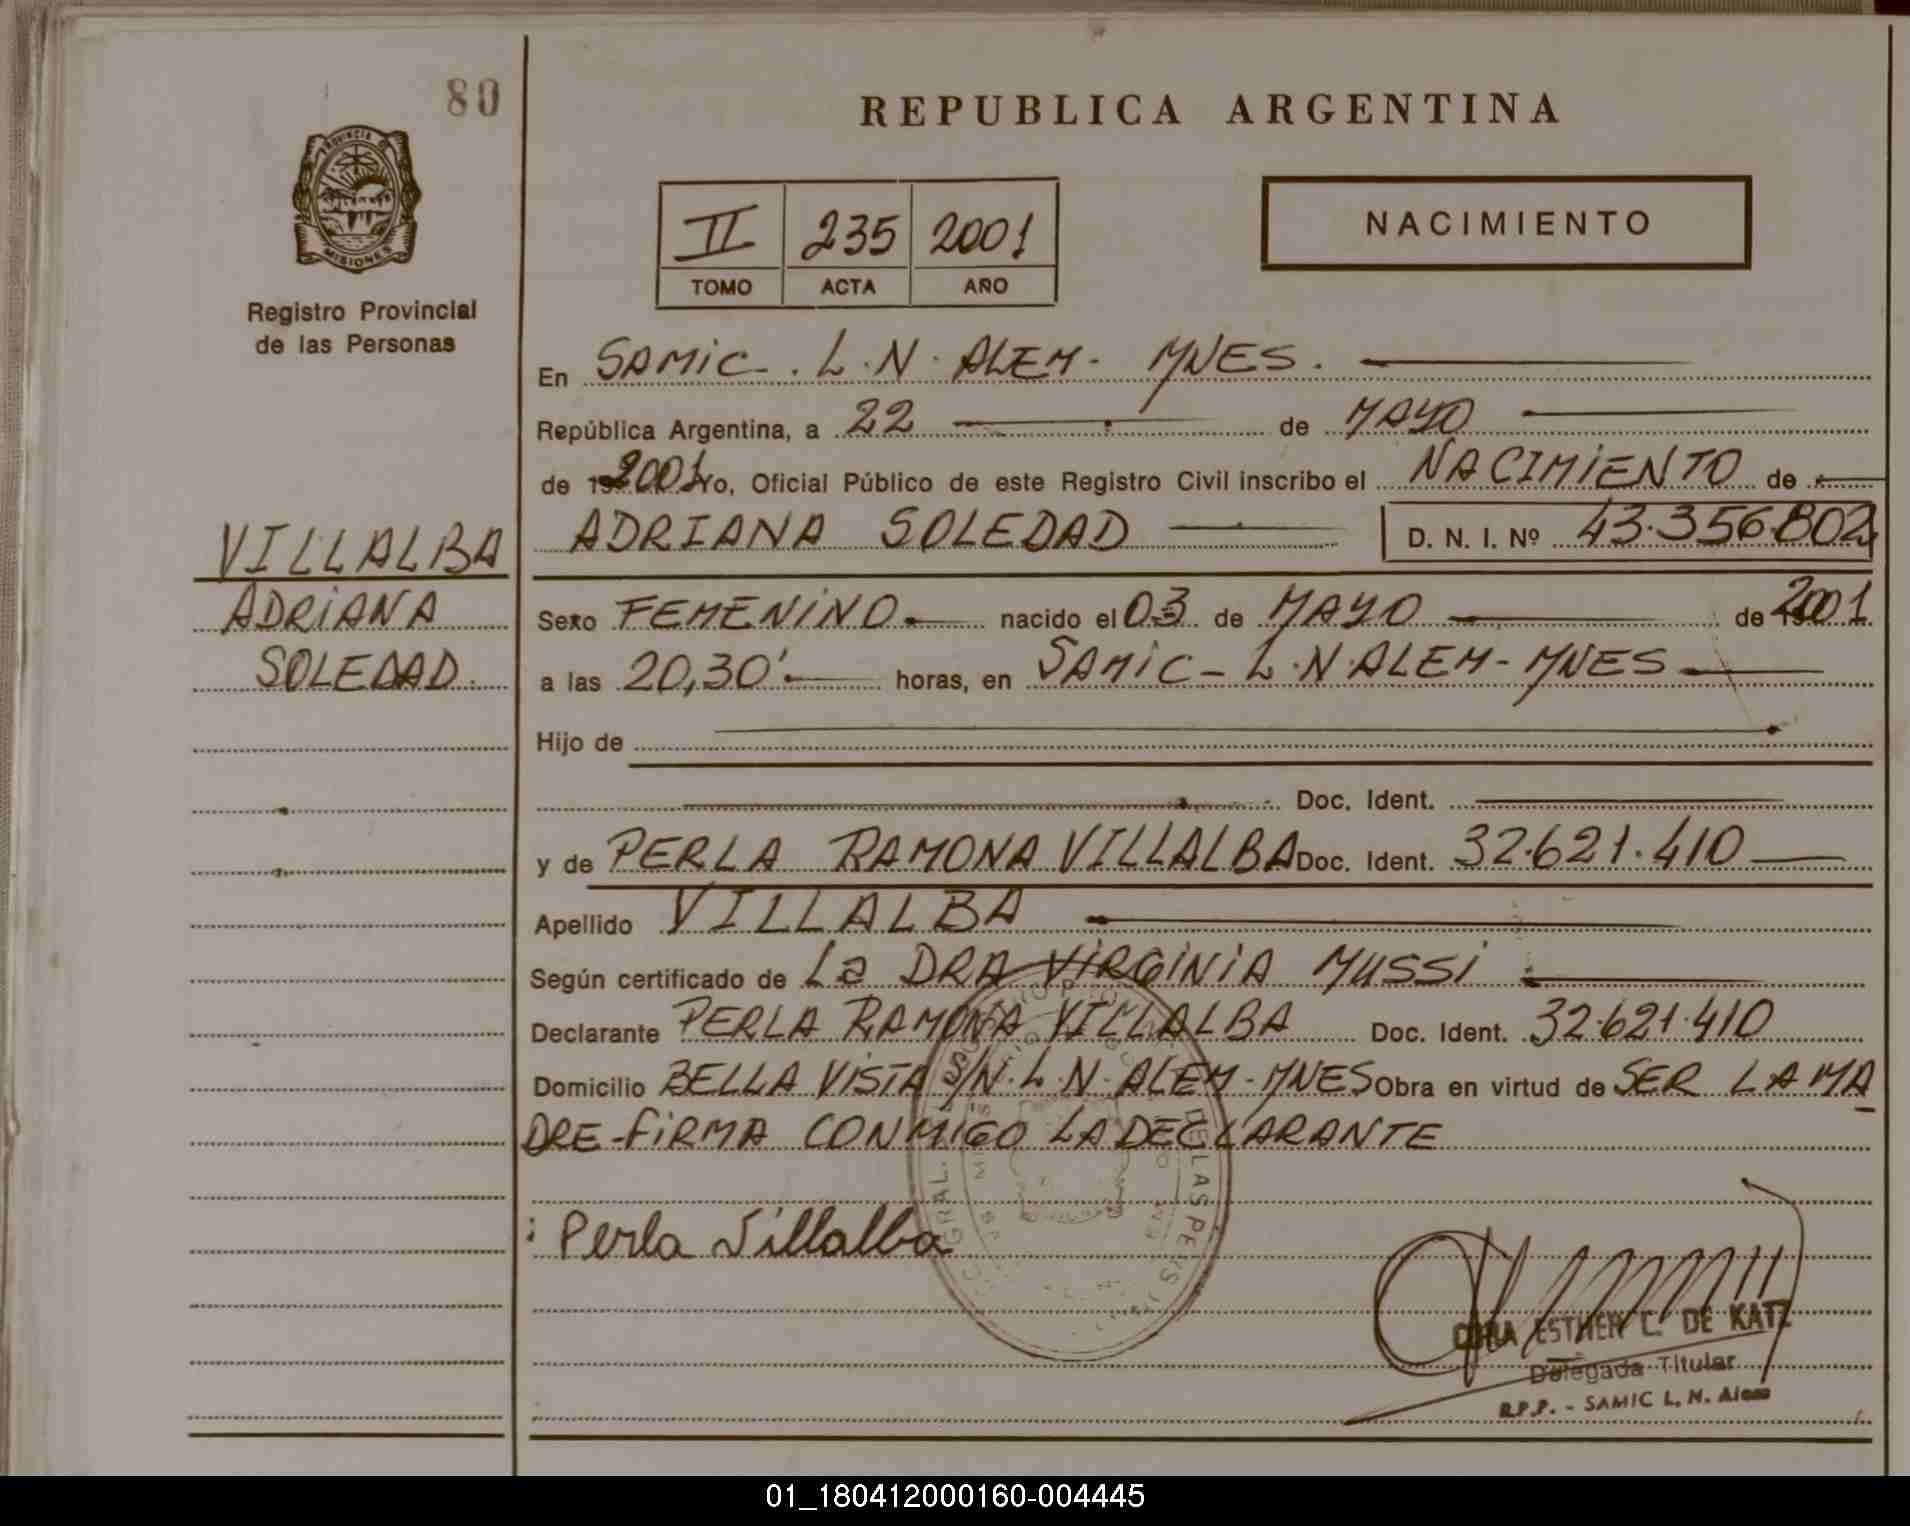 80
REPUBLICA ARGENTINA
PROVINCIA DE
MISIONES
Registro Provincial
de las Personas
II 235 2001
TOMO ACTA AÑO
NACIMIENTO
En SAMIC-. L.N. ALEM- MNES.
República Argentina, a 22 de MAYO
de 2001 Yo, Oficial Público de este Registro Civil inscribo el NACIMIENTO de
VILLALBA
ADRIANA
SOLEDAD.
ADRIANA SOLEDAD D. N. I. Nº 43.356.802
Sexo FEMENINO nacido el 03 de MAYO de 2001
a las 20,30' horas, en SAMIC- L.N.ALEM- MNES
Hijo de
Doc. Ident.
y de PERLA RAMONA VILLALBA Doc. Ident. 32.621.410
Apellido VILLALBA
Según certificado de La DRA VIRGINIA MUSSI
Declarante PERLA RAMONA VILLALBA Doc. Ident. 32.621.410
Domicilio BELLA VISTA S/N. L.N. ALEM- MNES Obra en virtud de SER LA MA
DRE-FIRMA CONMIGO LA DECLARANTE
Perla Villalba
ESTHER C. DE KATZ
Delegada Titular
R.P.P. - SAMIC L. N. Alem
01_180412000160-004445